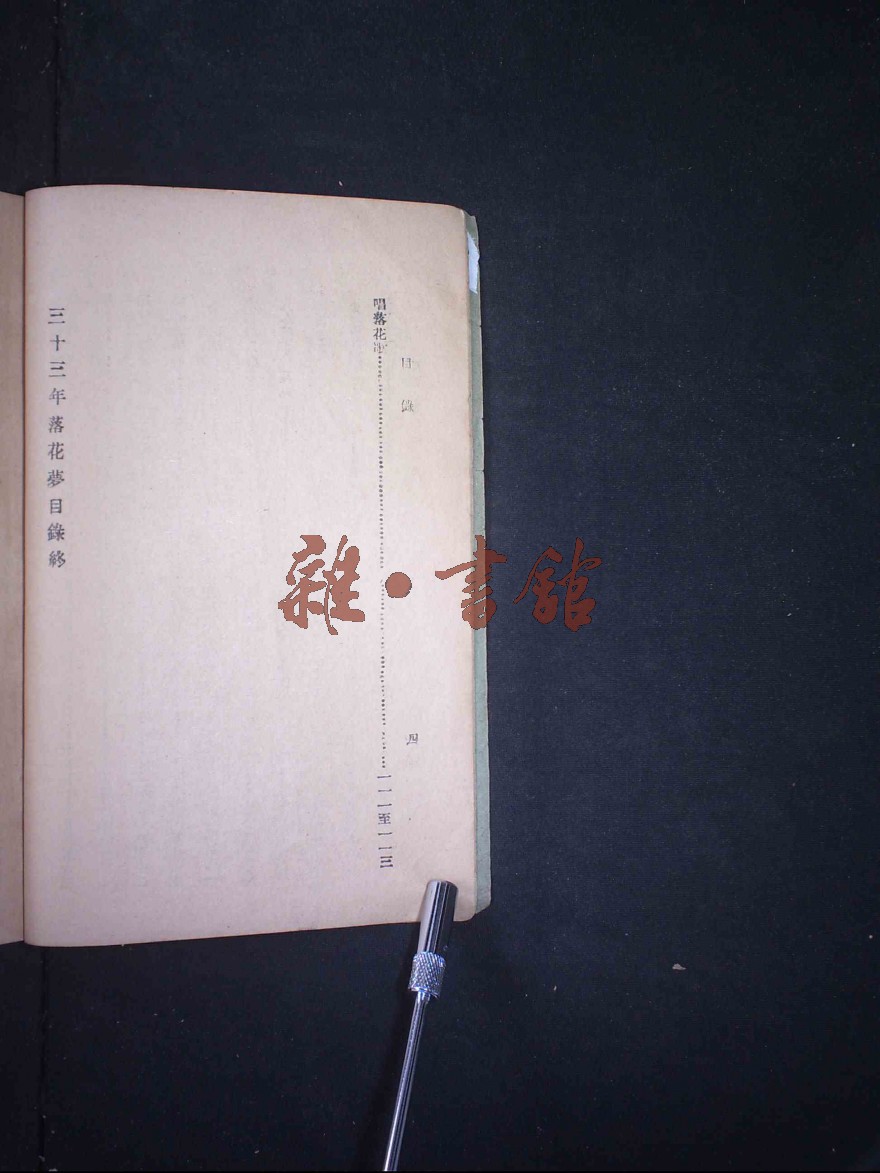 目錄
四
唱落花歌……一一一至一一三
三十三年落花夢目錄終
雜·書館